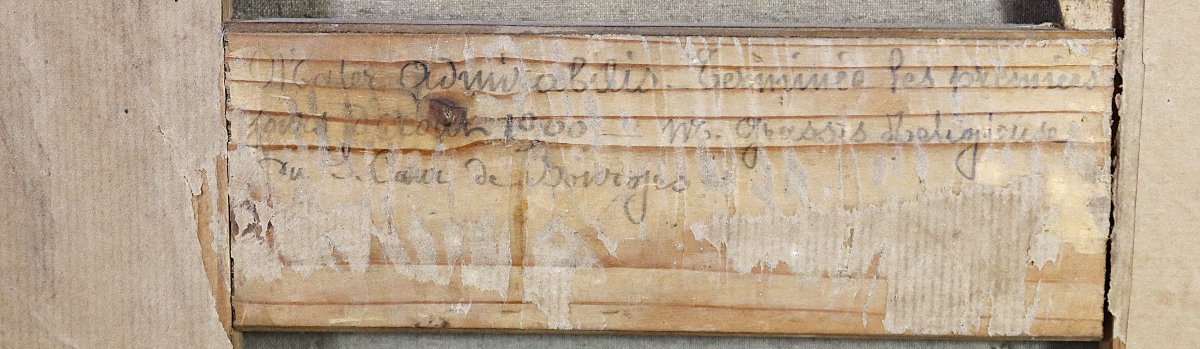 Mater Admirabilis. Terminée les premiers
jours d'Août 1900 — M. Grassis Religieuse
du S. Cœur de Bourges